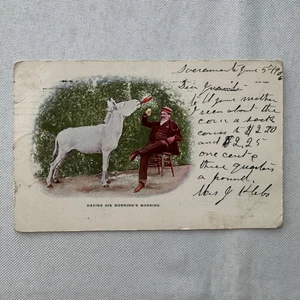 Sacramento June 5th
Dear
tell your mother
I seen about the
corn a sack
comes to $2.70
and $2.25
one cent &
three quarters
a pound.
Mrs J
HAVING HIS MORNING'S MORNING